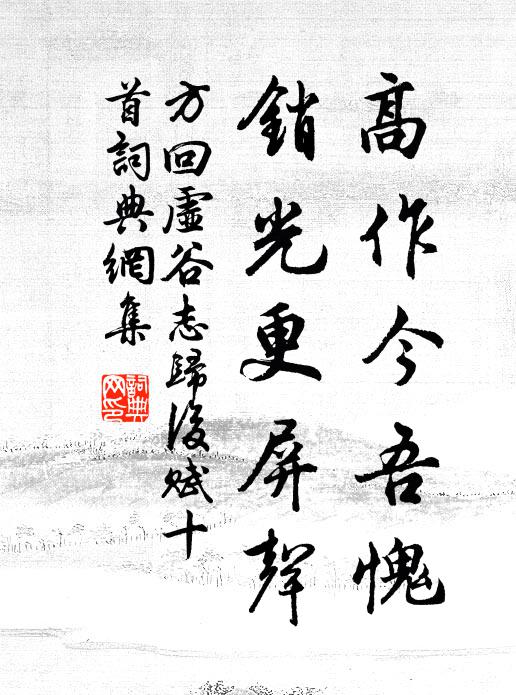 高作今吾愧
銷光更屏聲
方回虛谷志歸後賦十
首詞典網集
詞典
网印